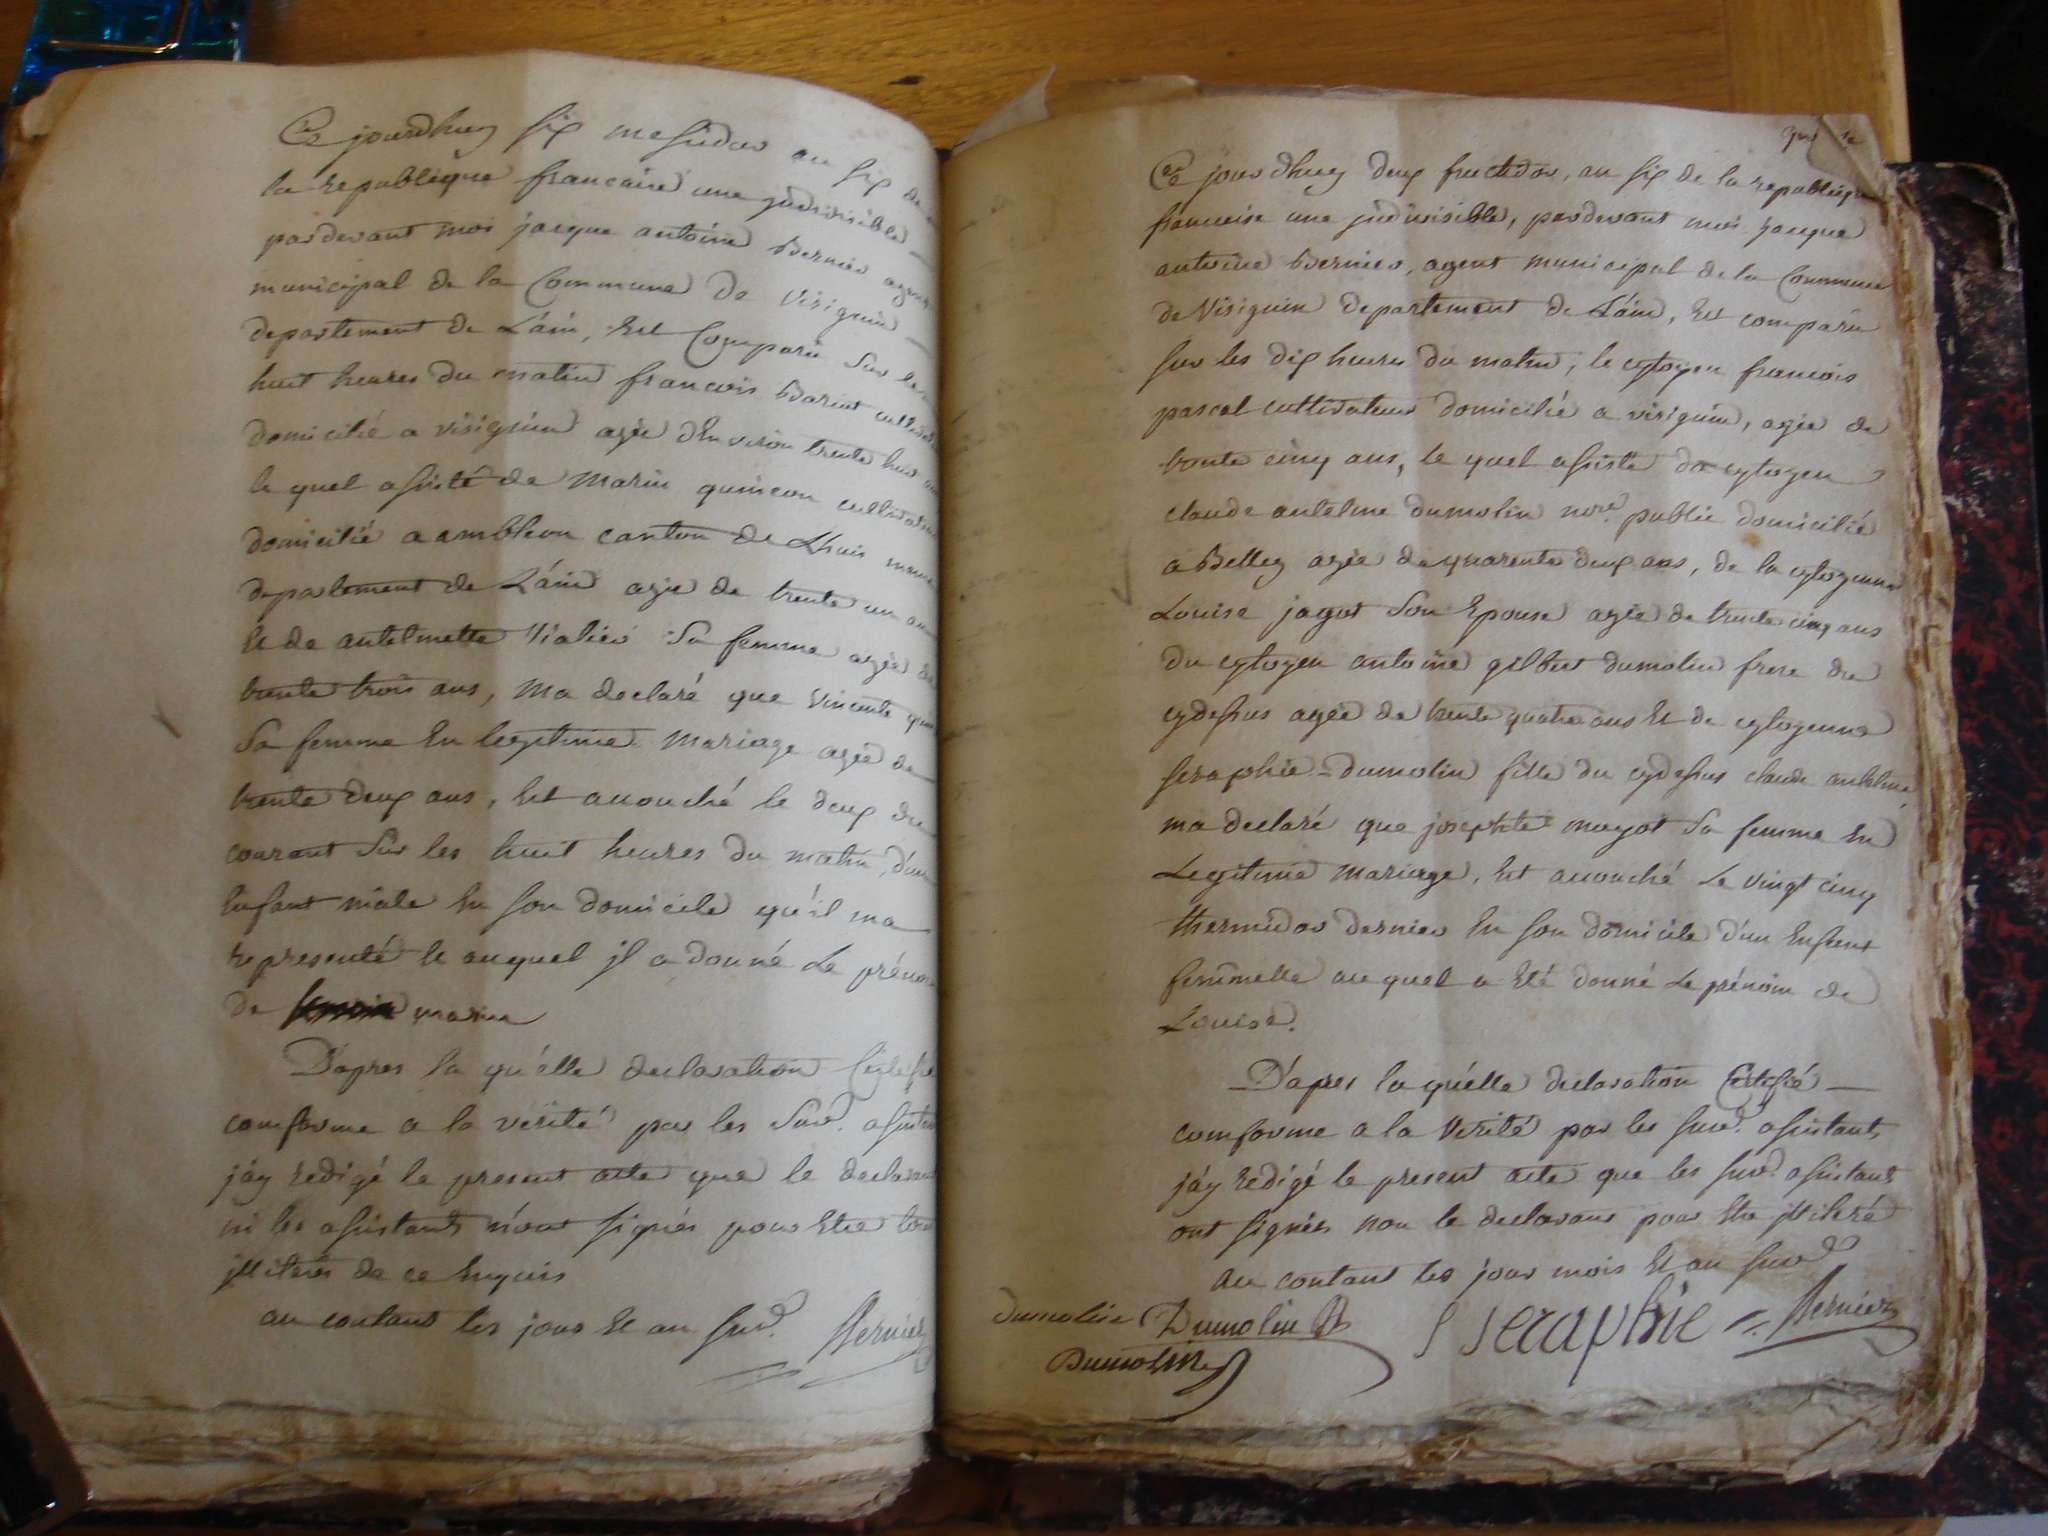 Ce jourdhuy six mesidor an six de
la republique francaise une jndivisible
pardevant moi jacque antoine Bernier agent
municipal de la Commune de Visignin
departement de L'ain, Est Comparu Sur les
huit heures du matin francois Barint
domicilié a visignin agée d'Environ trente huit
le quel assisté de Marin quinson cultivateur
domicilié a ambleon canton de Lhuis meme
departement de L'ain agée de trente un ans
Et de antelmette Vialier Sa femme agée de
trente trois ans, ma declaré que Vincente
Sa femme En legitime mariage agée de
trente deux ans, Est acouché le deux du
courant Sur les huit heures du matin, d'un
Enfant mâle En son domicile qu'il ma
representé Et auquel jl a donné Le prénom
de marin
D'apres la qu'elle declaration
comforme a la verité par les Susd. assistants
j'ay Redigé le present acte que le declarant
ni les assistants n'ont signés pour Etre tous
jlliterés de ce Enquis
au contant les jour Et an susd. Bernier
Ce jourdhuy deux fructidor, an six de la republique
francaise une jndivisible, pardevant moi jacque
antoine Bernier, agent municipal de la Commune
de Visignin departement de L'ain, Est comparu
sur les dix heures du matin, le cytoyen francois
pascal cultivateur domicilié a visignin, agée de
trente cinq ans, le quel assisté du cytoyen
claude antelme dumolin nore. public domicilié
a Belley agée de quarente deux ans, de la cytoyenne
Louise jagot Son Epouse agée de trente cinq ans
du cytoyen antoine gilbert dumolin frere du
cydessus agée de trente quatre ans Et de cytoyenne
seraphie Dumolin fille du cydessus claude antelme,
ma declaré que josephte mayot Sa femme En
Legitime mariage, Est acouché Le vingt cinq
thermidor dernier En son domicile d'un Enfant
femmelle au quel a Eté donné Le prénom de
Louise.
D'apres la qu'elle declaration Certifié
comforme a la Verité par les susd. assistants
j'ay Redigé le present acte que les susd. assistants
ont signés non le declarant pour Etre jlliteré
au contant les jour mois Et an susd
dumolin Dumolin S seraphie Bernier
Dumolin